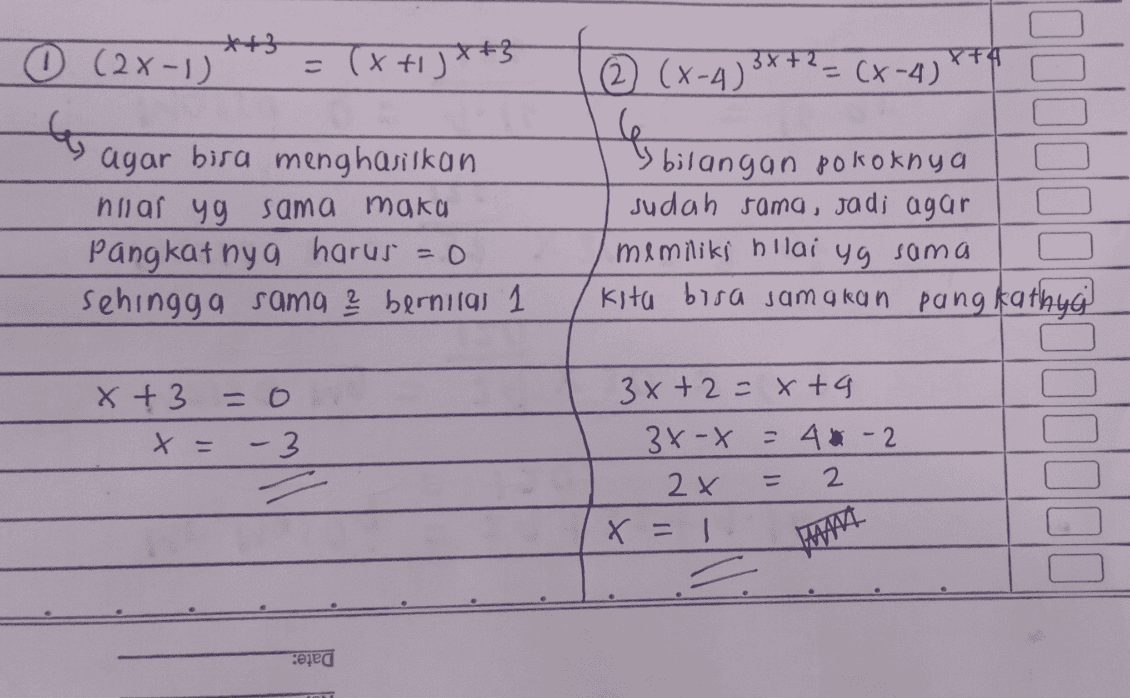 ① (2x-1)^x+3 = (x+1)^x+3
↳ agar bisa menghasilkan
nilai yg sama maka
pangkatnya harus = 0
sehingga sama² bernilai 1
x + 3 = 0
x = -3
② (x-4)^3x+2 = (x-4)^x+4
↳ bilangan pokoknya
sudah sama, jadi agar
memiliki nilai yg sama
kita bisa samakan pangkatnya
3x + 2 = x + 4
3x - x = 4 - 2
2x = 2
x = 1
Date: